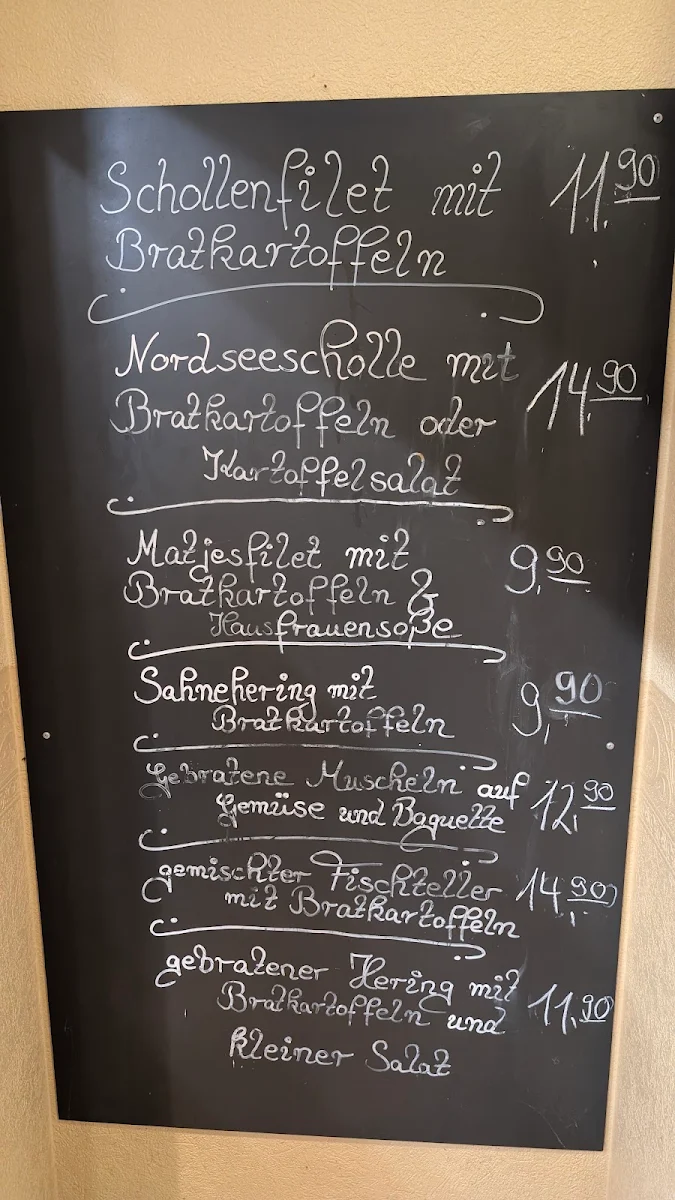 Schollenfilet mit 11,90
Bratkartoffeln
Nordseescholle mit
Bratkartoffeln oder 14,90
Kartoffelsalat
Matjesfilet mit 9,90
Bratkartoffeln &
Hausfrauensoße
Sahnehering mit 9,90
Bratkartoffeln
Gebratene Muscheln auf 12,90
Gemüse und Baguette
gemischter Fischteller 14,90
mit Bratkartoffeln
gebratener Hering mit 11,90
Bratkartoffeln und
kleiner Salat